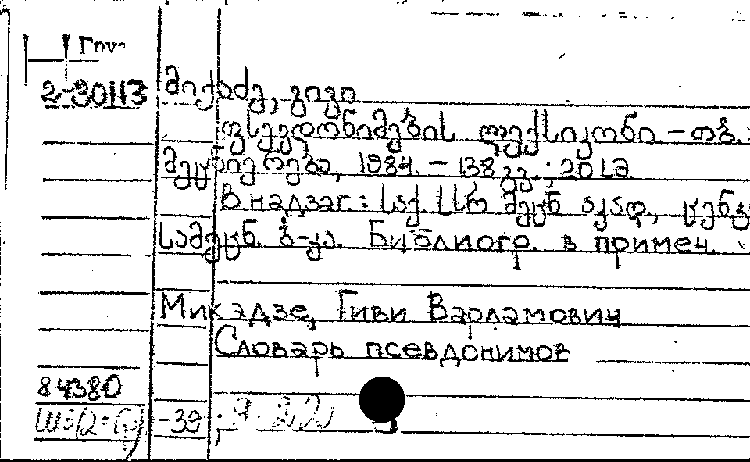 Груз
2-30113 მიქაძე, გივი
ფსევდონიმების ლექსიკონი – თბ.:
მეცნიერება, 1984. – 138 გვ.; 20 სმ.
В надзаг.: საქ. სსრ მეცნ. აკად., ცენტრ.
სამეცნ. ბ-კა. Библиогр. в примеч.
Микадзе, Гиви Варламович
Словарь псевдонимов
84380